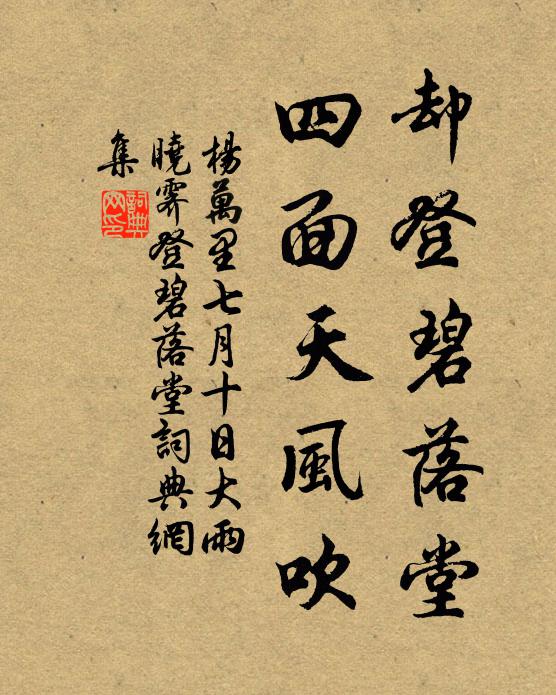 却登碧落堂
四面天風吹
楊萬里七月十日大雨
曉霽登碧落堂詞典網
集
詞典网印